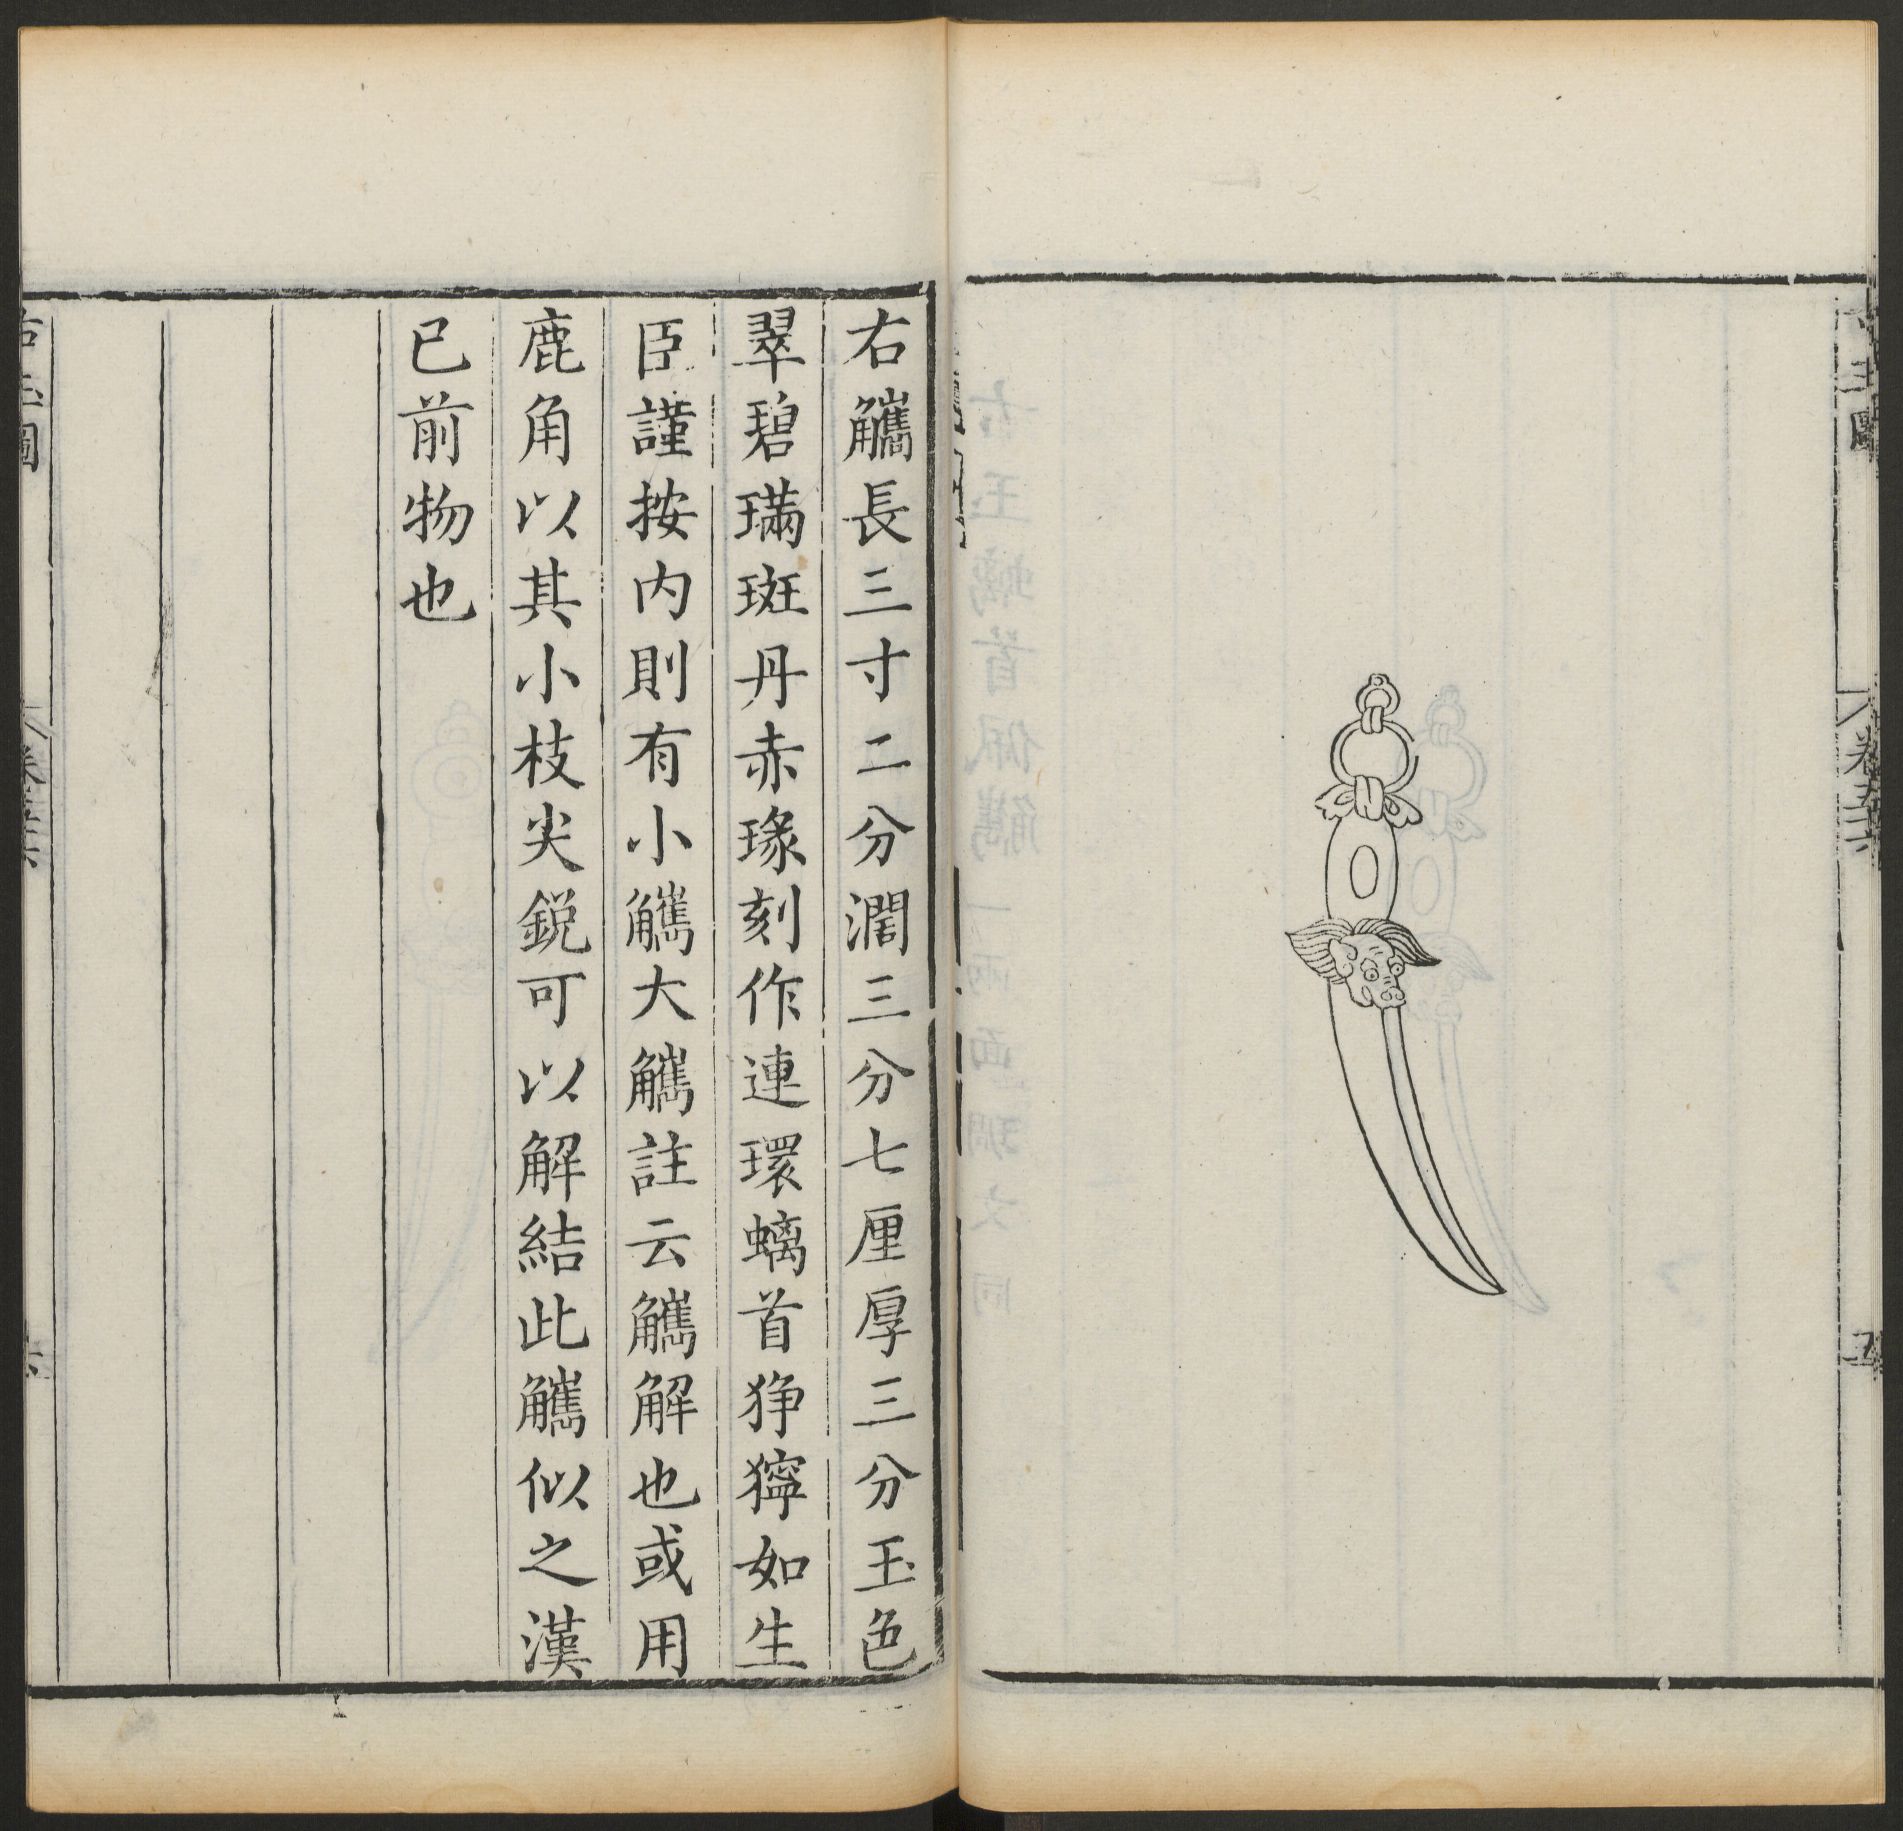 右觿長三寸二分濶三分七厘厚三分玉色
翠碧璊斑丹赤瑑刻作連環螭首猙獰如生
臣謹按内則有小觿大觿註云觿解也或用
鹿角以其小枝尖銳可以解結此觿似之漢
已前物也